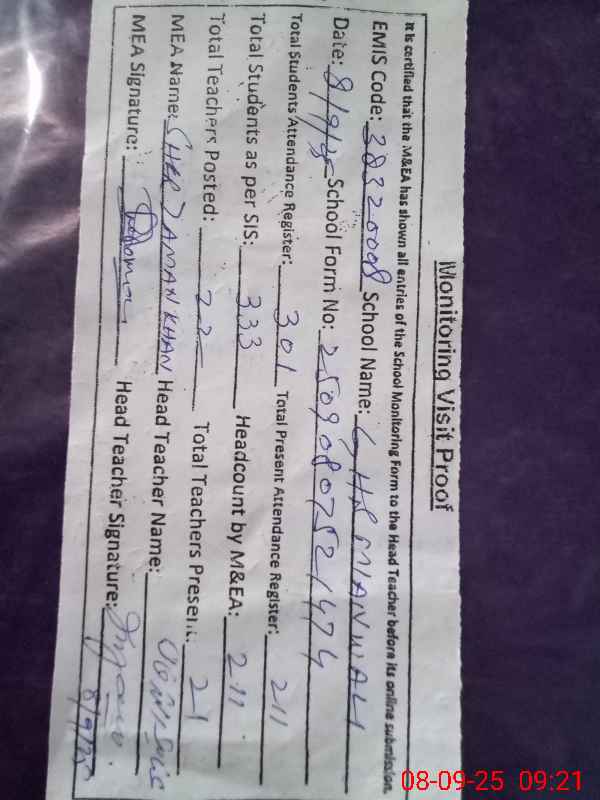 Monitoring Visit Proof
It is certified that the M&EA has shown all entries of the School Monitoring Form to the Head Teacher before its online submission.
EMIS Code: 38320008 School Name: GHS MIANWALI
Date: 8/9/25 School Form No: 25090807521474
Total Students Attendance Register: 301 Total Present Attendance Register: 211
Total Students as per SIS: 333 Headcount by M&EA: 211
Total Teachers Posted: 22 Total Teachers Present: 21
MEA Name: SHER ZAMAN KHAN Head Teacher Name:
MEA Signature: Head Teacher Signature:
8/9/25
08-09-25 09:21